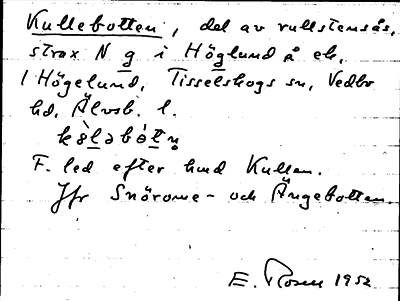 Kullebotten, del av rullstensås,
strax N g i Höglund å ek,
1 Högelund, Tisselskogs sn, Vedbo
hd, Älvsb. l.
kö̀ləbót̥n̥
F. led efter hmd Kullen.
Jfr Snörome- och Ängebotten.
E. Rosen 1952